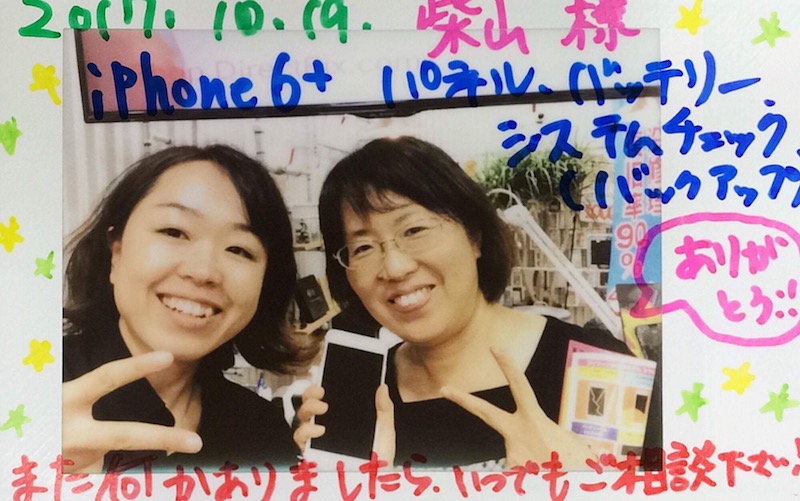 2017. 10. 19. 柴山 様
iPhone 6+ パネル、バッテリー
システムチェック、
(バックアップ)
90%
ありが
とう!!
また何かありましたら、いつでもご相談下さい!